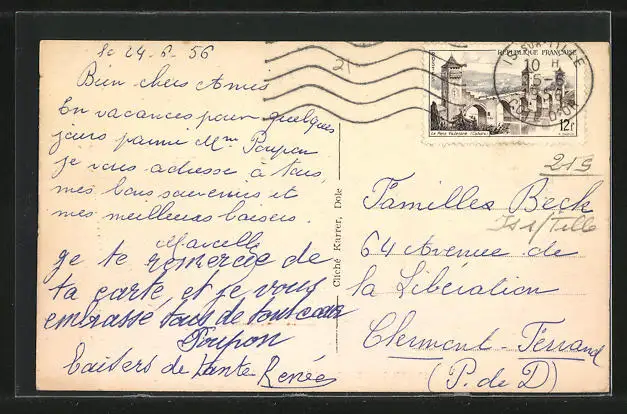 le 24-6-56
Bien chers Amis
En vacances pour quelques
jours parmi Mme Poupon
je vous adresse à tous,
mes bons souvenirs et
mes meilleurs baisers.
Marcelle
Je te remercie de
ta carte et je vous
embrasse tous de tout cœur
Poupon
baisers de tante Renée
Cliché Karrer, Dole
REPUBLIQUE FRANÇAISE
POSTES
Le Pont Valentré (Cahors)
12F
IS-SUR-TILLE
10 H
CÔTE D'OR
21
219
Familles Beck
Is s/Tille
64 Avenue de
la Libération
Clermont-Ferrand
(P. de D)